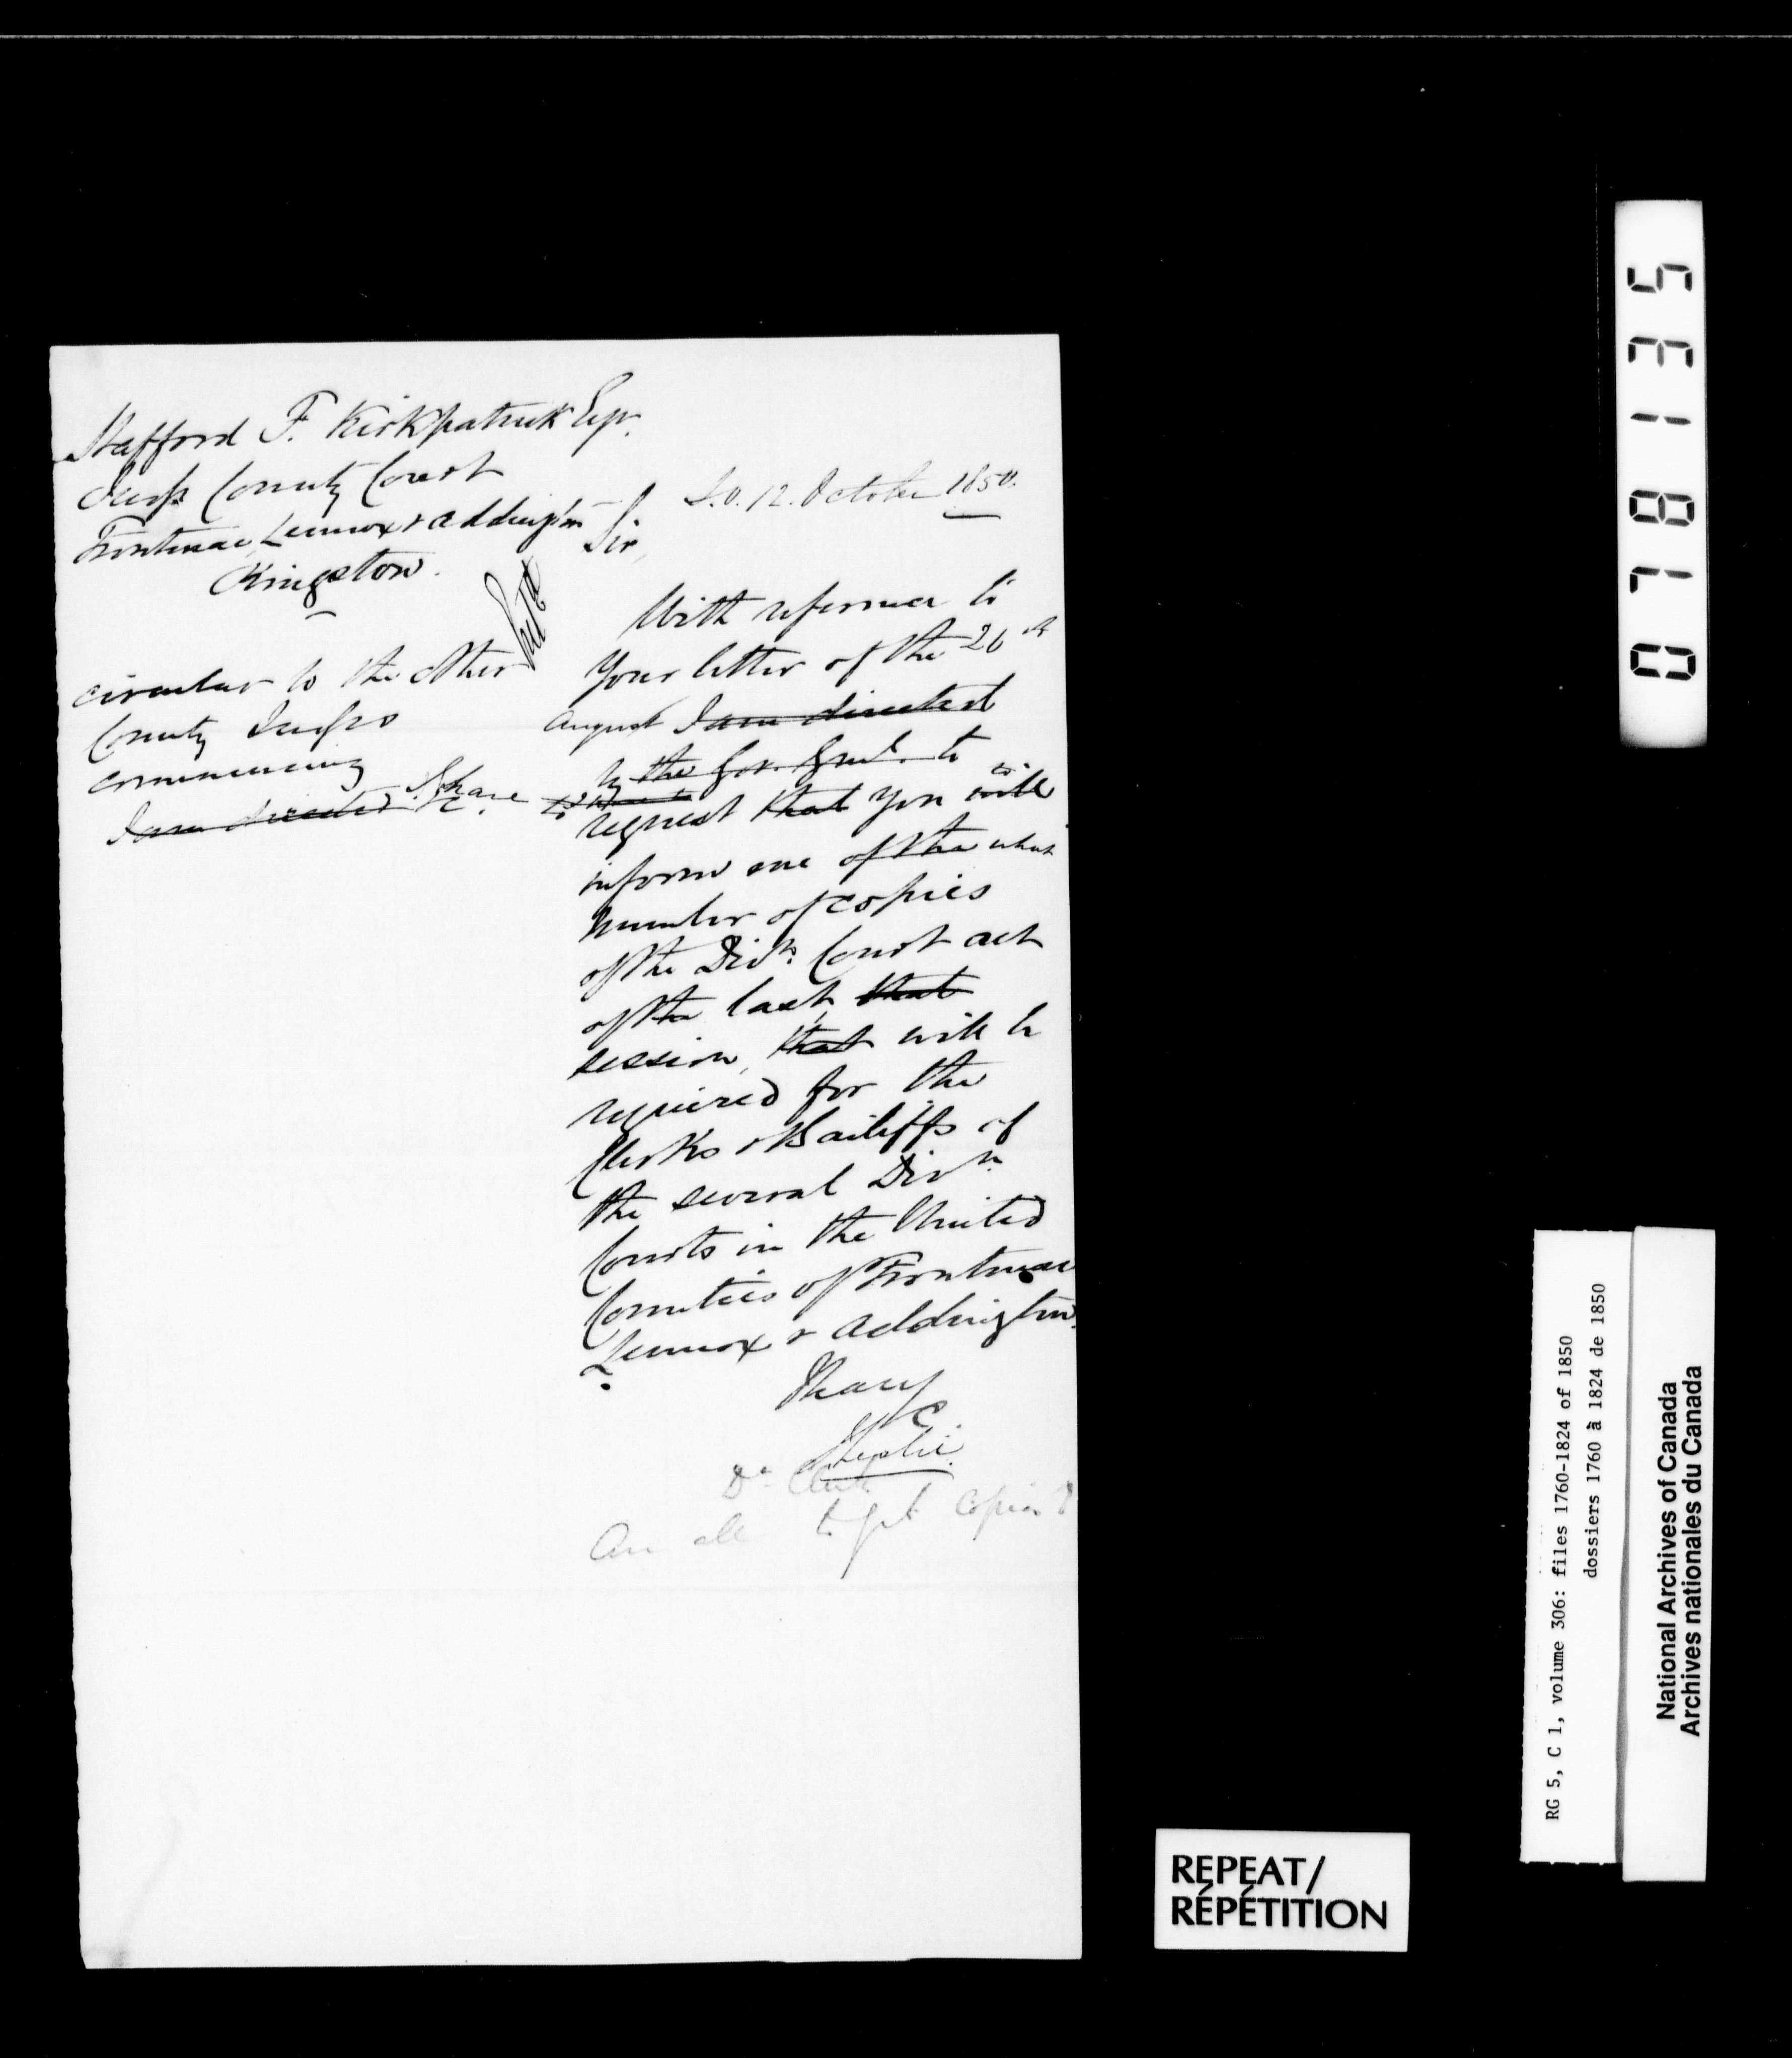 Stafford F. Kirkpatrick Esqr.
Judge County Court
Frontenac, Lennox & Addington
Kingston.
circular to the other
County Judges
commencing
I am directed I have &c.
S.O. 12. October 1850.
Sir,
With reference to
your letter of the 26th
August I am directed
by the Gov. Genl. to
request that you will to
inform me of the what
number of copies
of the Divn. Court act
of the last, that
session, that will be
required for the
Clerks & Bailiffs of
the several Divn.
Courts in the United
Counties of Frontenac
Lennox & Addington.
I have
&c.
J. Leslie
to get copies
078135
RG 5, C 1, volume 306: files 1760-1824 of 1850
dossiers 1760 à 1824 de 1850
National Archives of Canada
Archives nationales du Canada
REPEAT/
RÉPÉTITION